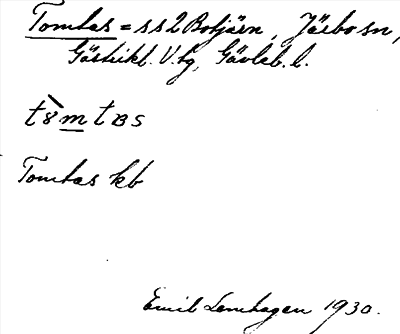 Tomtas = s s 2 Botjärn, Järbo sn,
Gästrikl. V. tg, Gävleb. l.
t`8m t B s
Tomtas kb
Emil Lenhagen 1930.